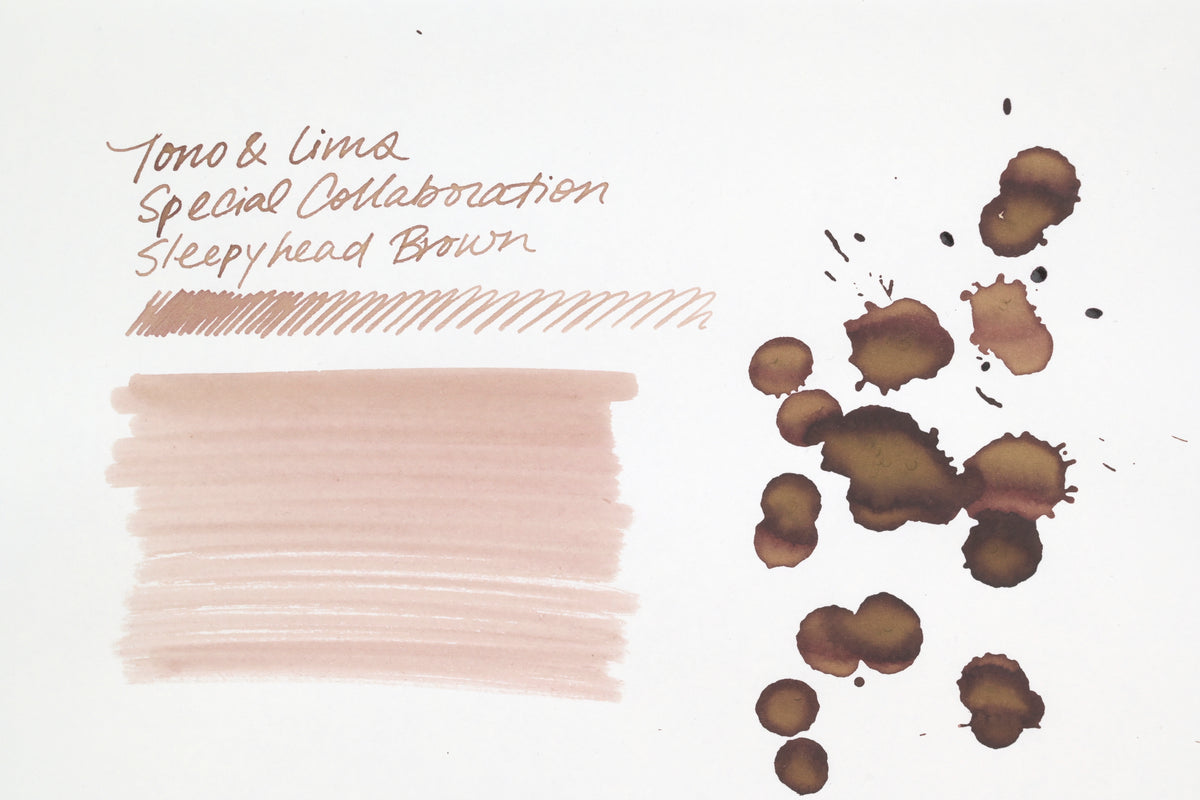 Tono & Lims
Special Collaboration
Sleepyhead Brown